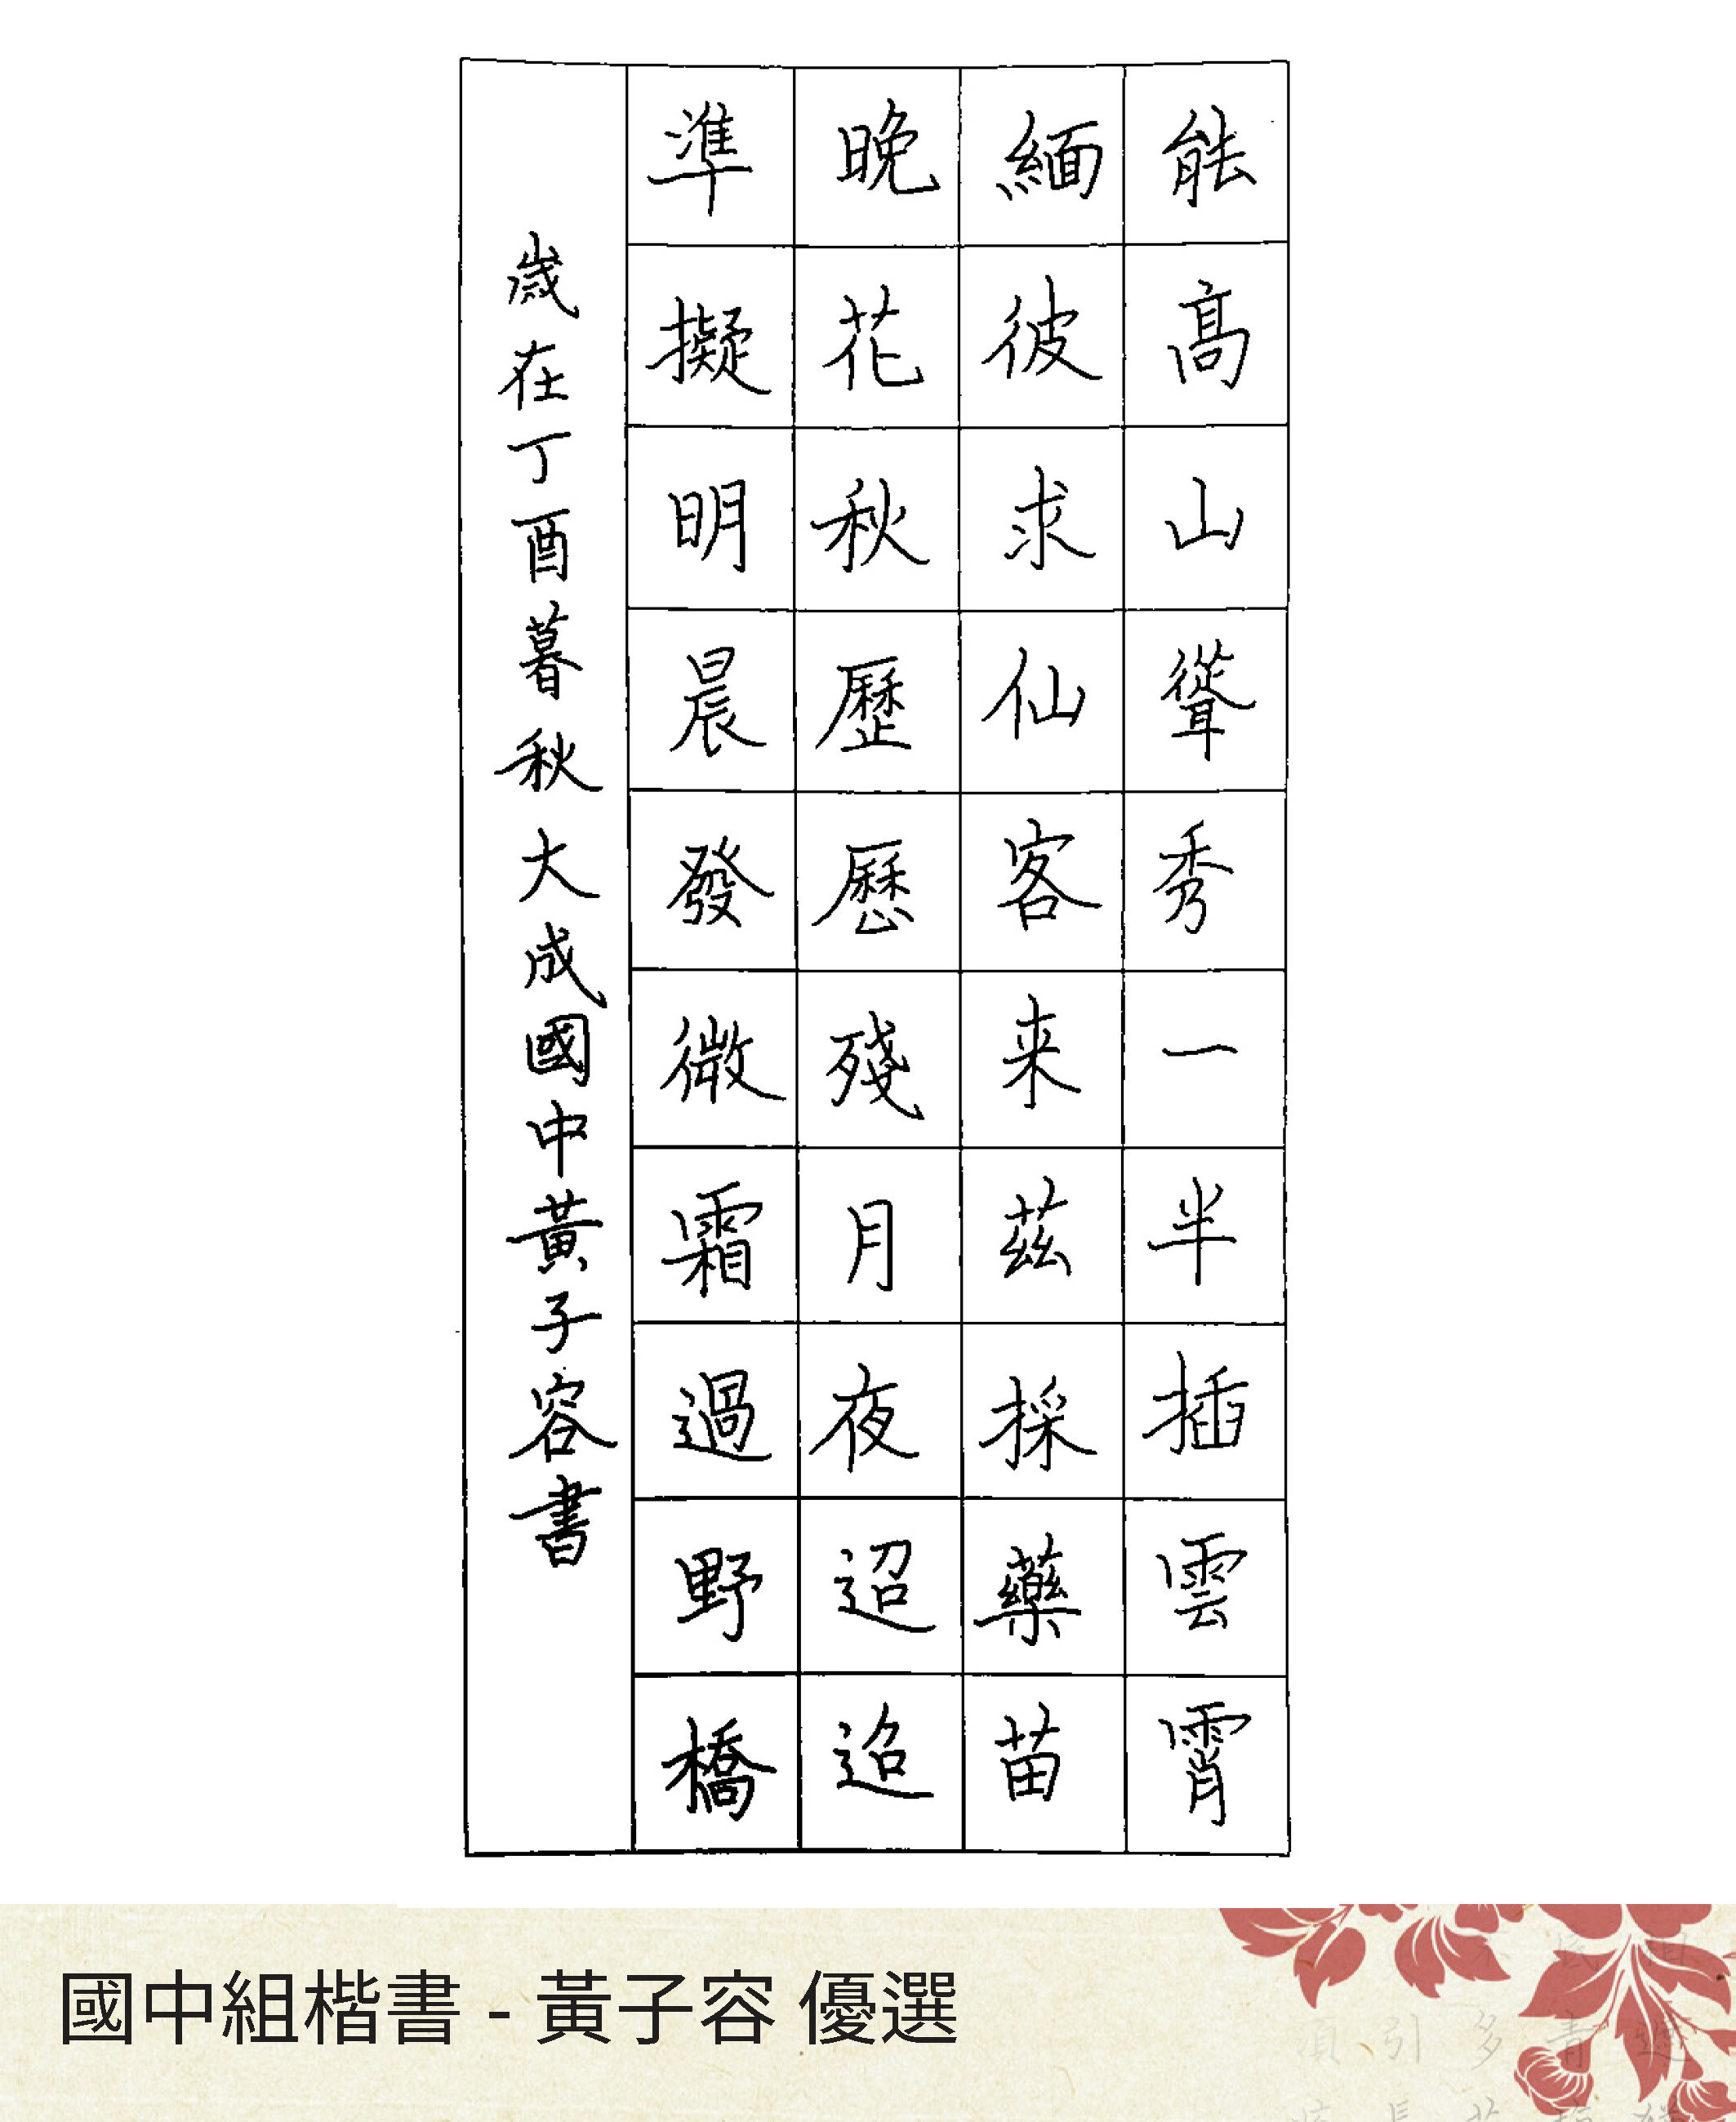 能高山聳秀一半插雲霄
緬彼求仙客来茲採藥苗
晚花秋歷歷殘月夜迢迢
準擬明晨發微霜過野橋
歲在丁酉暮秋大成國中黃子容書
國中組楷書 - 黃子容 優選